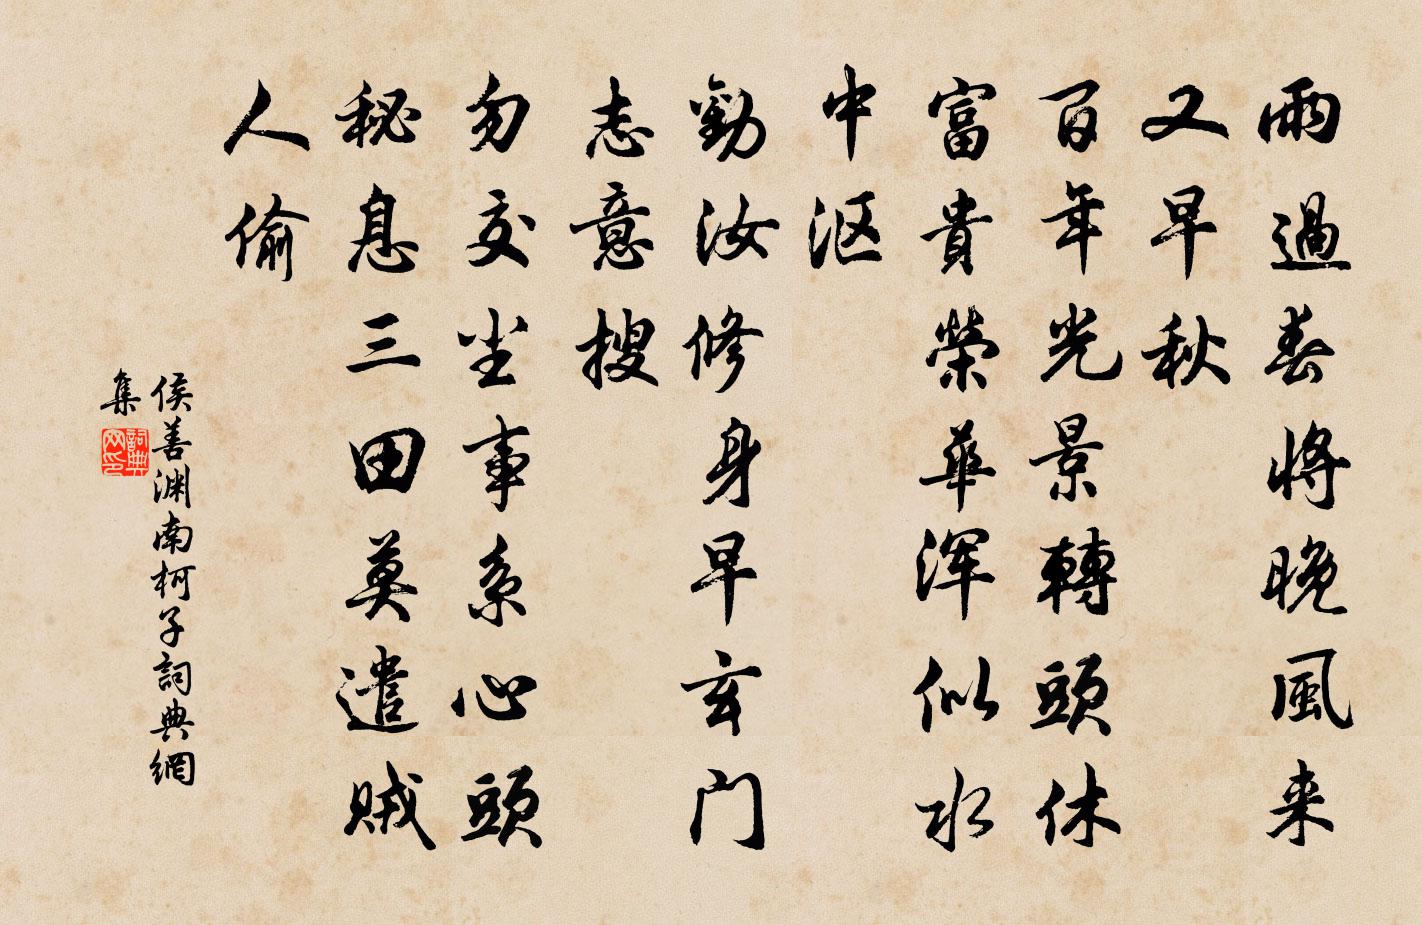 雨過春將晚風来
又早秋
百年光景轉頭休
富貴榮華浑似水
中沤
勸汝修身早玄门
志意搜
勿交尘事系心頭
秘息三田莫遣贼
人偷
侯善渊南柯子詞典網
集
詞典网印